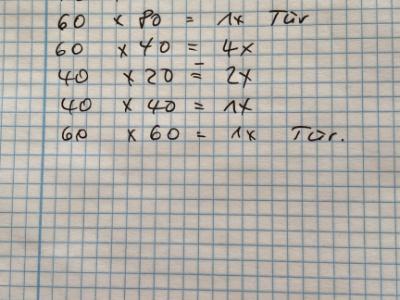 60 x 80 = 1x Tür
60 x 40 = 4x
40 x 20 = 2x
40 x 40 = 1x
60 x 60 = 1x Tür.